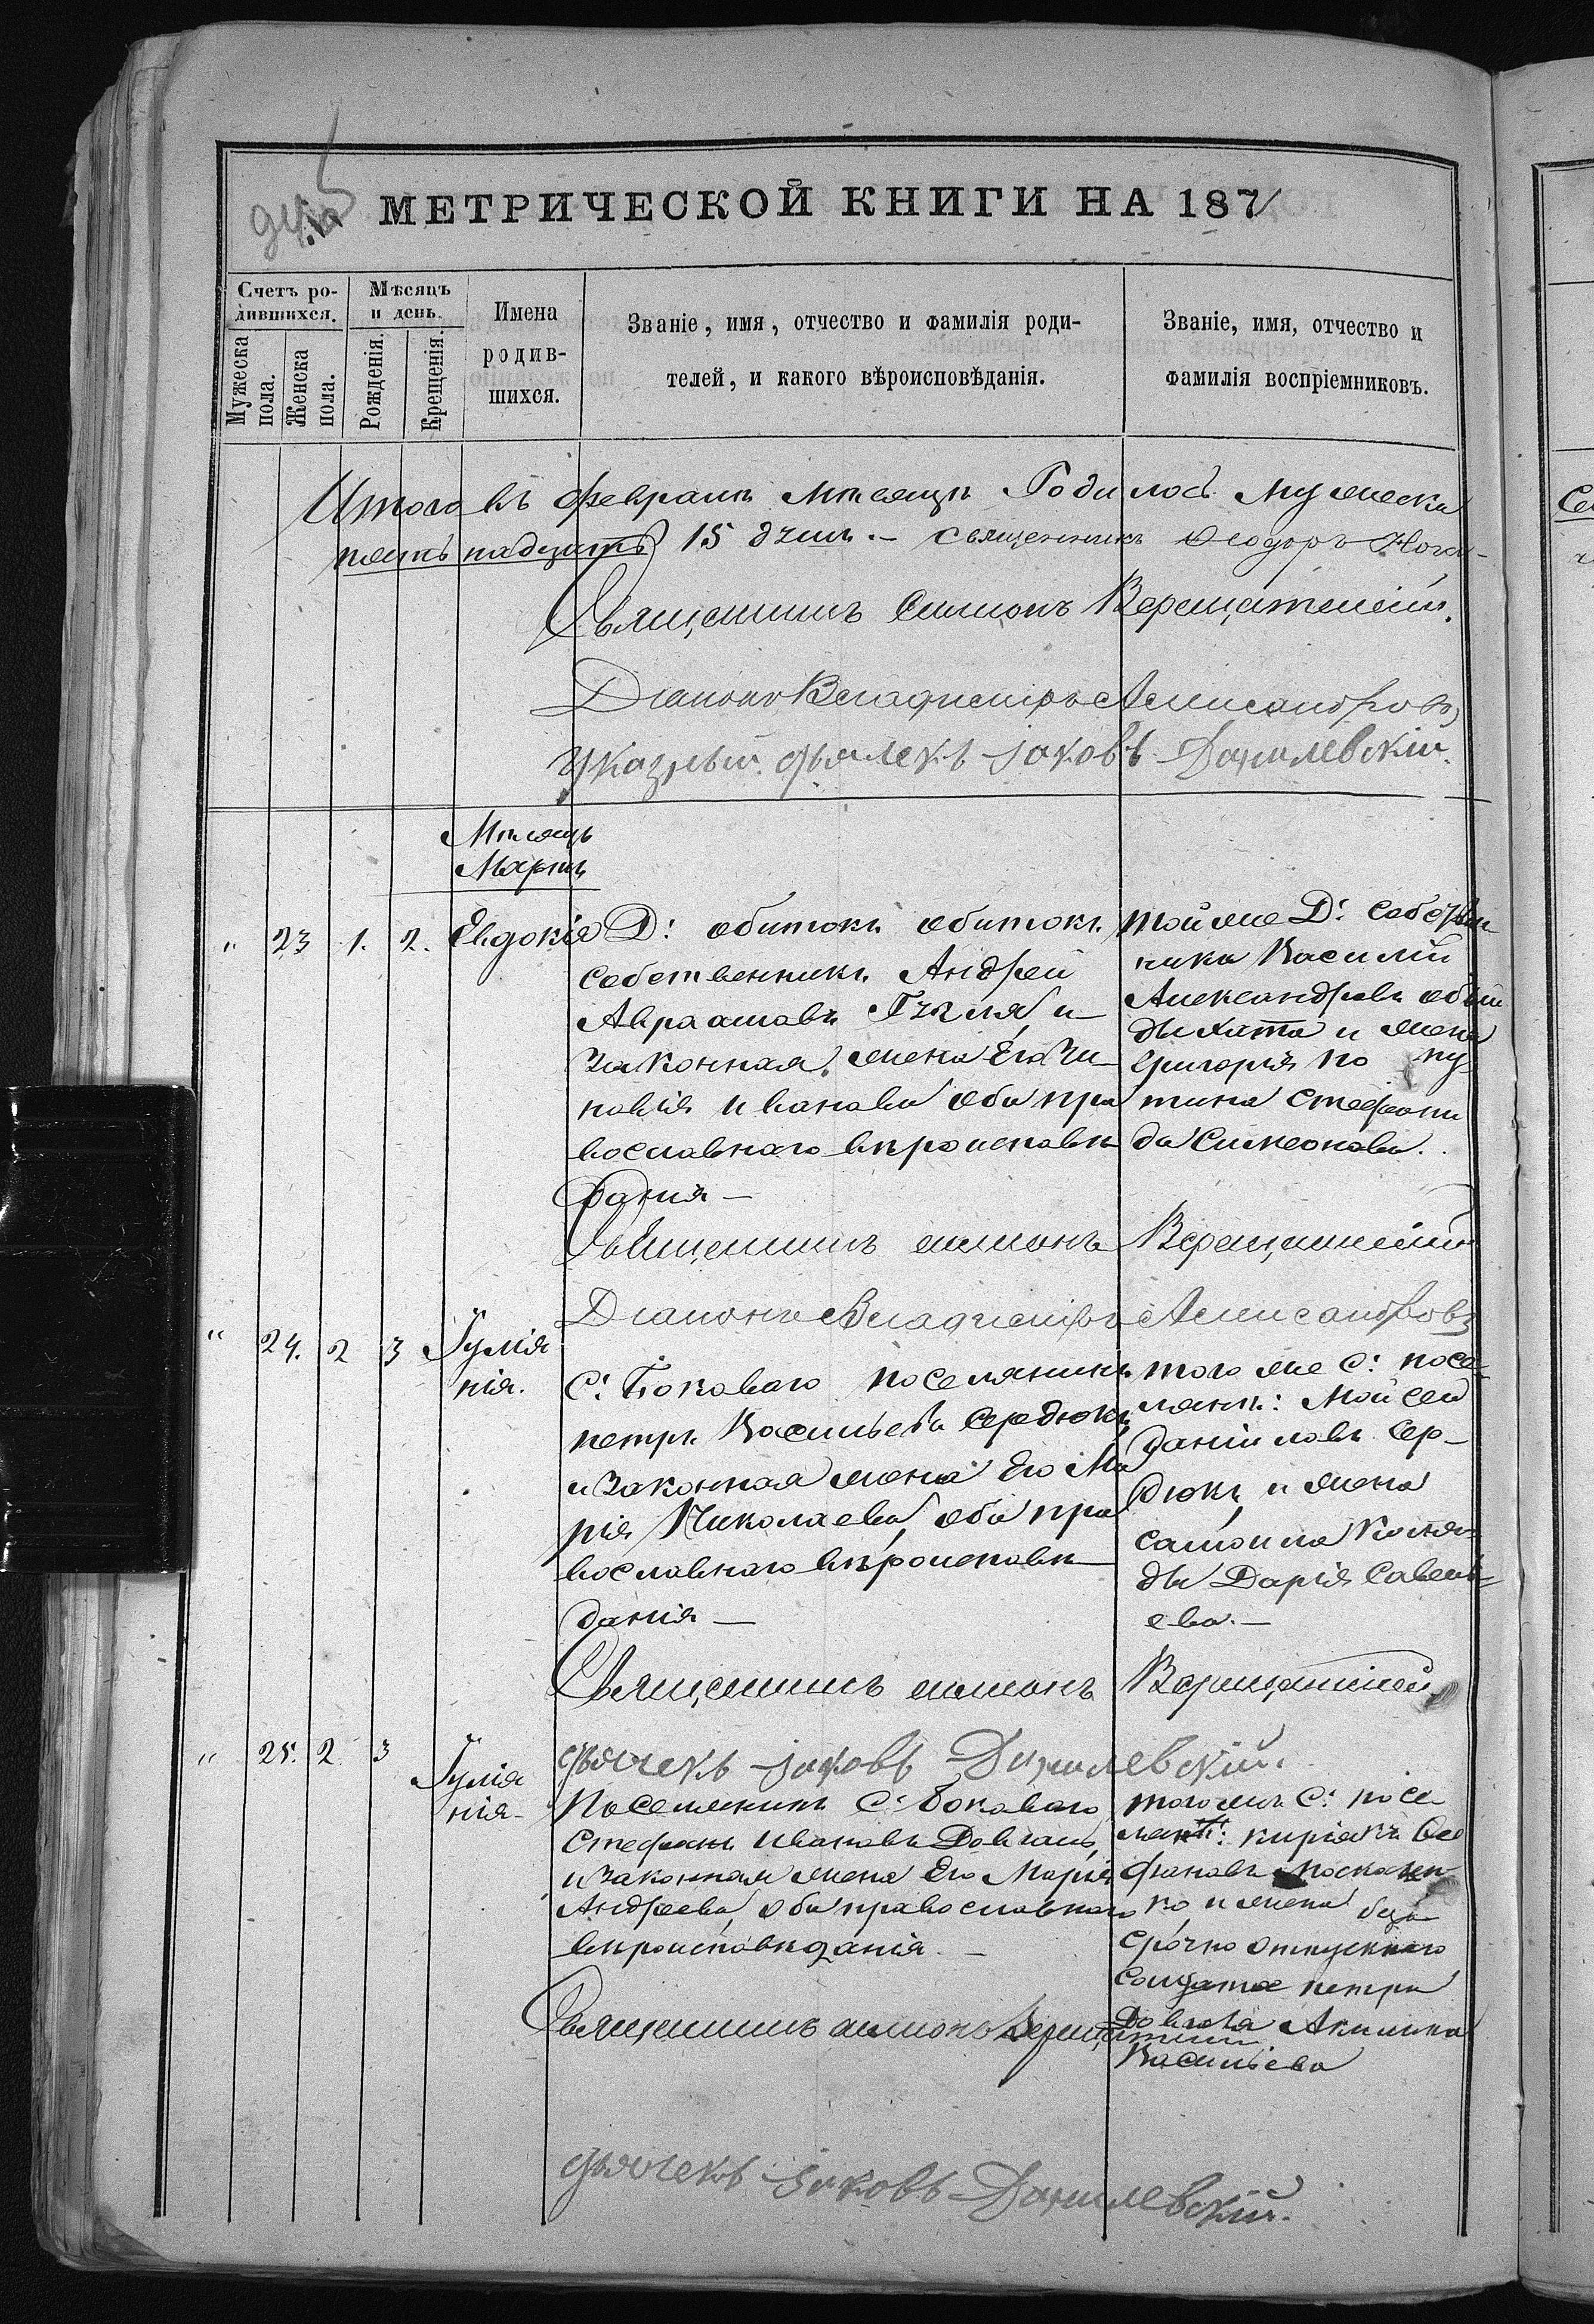 МЕТРИЧЕСКОЙ КНИГИ НА 187
Счетъ ро-
дившихся.
Мужеска пола.
Женска пола.
Мѣсяцъ
и день.
Рожденія.
Крещенія.
Имена
родив-
шихся.
Званіе, имя, отчество и фамилія роди-
телей, и какого вѣроисповѣданія.
Званіе, имя, отчество и
фамилія воспріемниковъ.
Итого въ Февралѣ Мѣсяцѣ Родилось Мужеска
пятьнадцать 15 душъ. – священникъ Ѳеодоръ
Священникъ Симонъ Верещатинскій.
Діаконъ Владиміръ Александровъ
Указный дьячекъ Іаковъ Данилевскій.
Мѣсяцъ
Мартъ
" 23 1. 2. Евдокія
Д:
собственникъ Андрей
Авраамовъ и
Законная жена Его Зи
новія Иванова оба пра
вославнаго вѣроисповѣ
данія –
тойже Д: собствен
ника Василій
Александровъ
и жена
Григорія
Стефани
да Симеонова.
Священникъ Симонъ Верещатинскій
Діаконъ Владиміръ Александровъ
" 24. 2 3 Іулія
нія.
С: Боковаго поселянинъ
петръ Васильевъ Сердюкъ
и Законная жена Его Ма
рія Николаева, оба пра
вославнаго вѣроисповѣ
данія –
того же С: посе-
лянинъ: Мойсей
Даніиловъ Сер-
дюкъ, и жена
самоила Коля
ды Дарія Савель-
ева. –
Священникъ Симонъ Верещатинскій
дьячекъ Іаковъ Данилевскій.
" 25. 2 3 Іулія
нія –
Поселянинъ С: Боковаго
Стефанъ Ивановъ Довгаль,
и Законная жена Его Марія
Андреева, оба православнаго
вѣроисповѣданія. –
тогожъ С: посе
лян: киріакъ Сте
фановъ Москален-
ко, и жена без
срочно отпускнаго
Солдата петра
Довгаля Акилина
Васильева
Священникъ Симонъ Верещатинскій
дьячекъ Іаковъ Данилевскій.